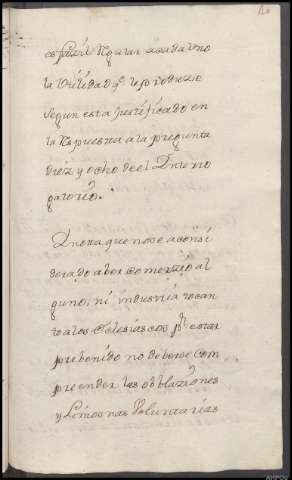 es facil Regular a cada Uno
la Utilidad q.e le produxere
segun esta justificado en
la Respuesta a la pregunta
diez y ocho de el Interro
gatorio.
In ora que nose a consi
derado aber comerzio al
guno, ni industria tocan
te a los Eclesiasticos p.r estar
prebenido no deberse com
preender las obblaziones
y Limosnas Voluntarias